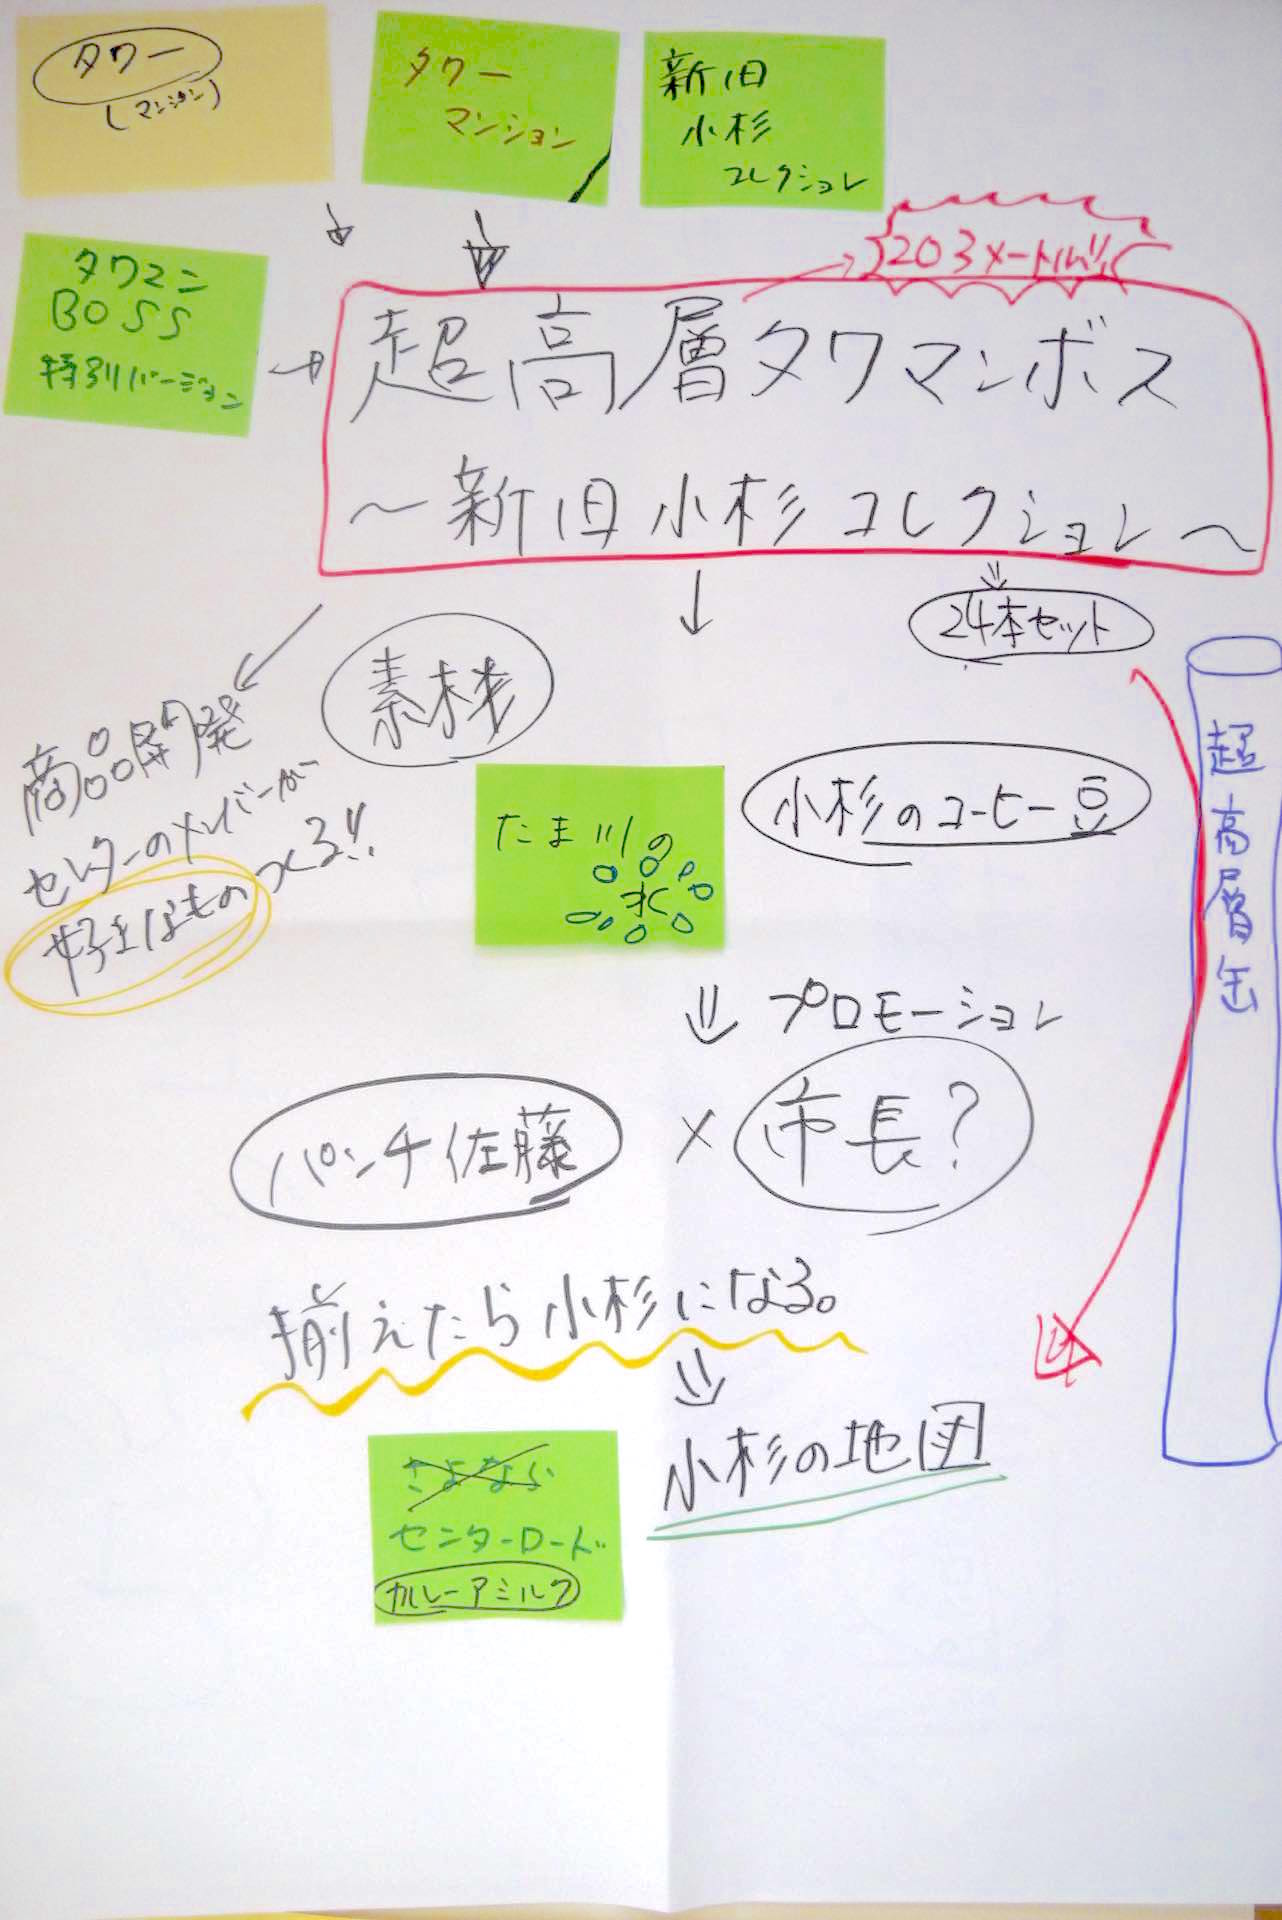 タワー
(マンション)
タワー
マンション
新旧
小杉
コレクション
タワマン
BOSS
特別バージョン
203メートル!!
超高層タワマンボス
～新旧小杉コレクション～
24本セット
素材
商品開発
センターのメンバーが
好きなものつくる!!
小杉のコーヒー豆
たま川の
水
超高層缶
プロモーション
パンチ佐藤 × 市長?
揃えたら小杉になる。
小杉の地図
さよなら
センターロード
カレーアミルク